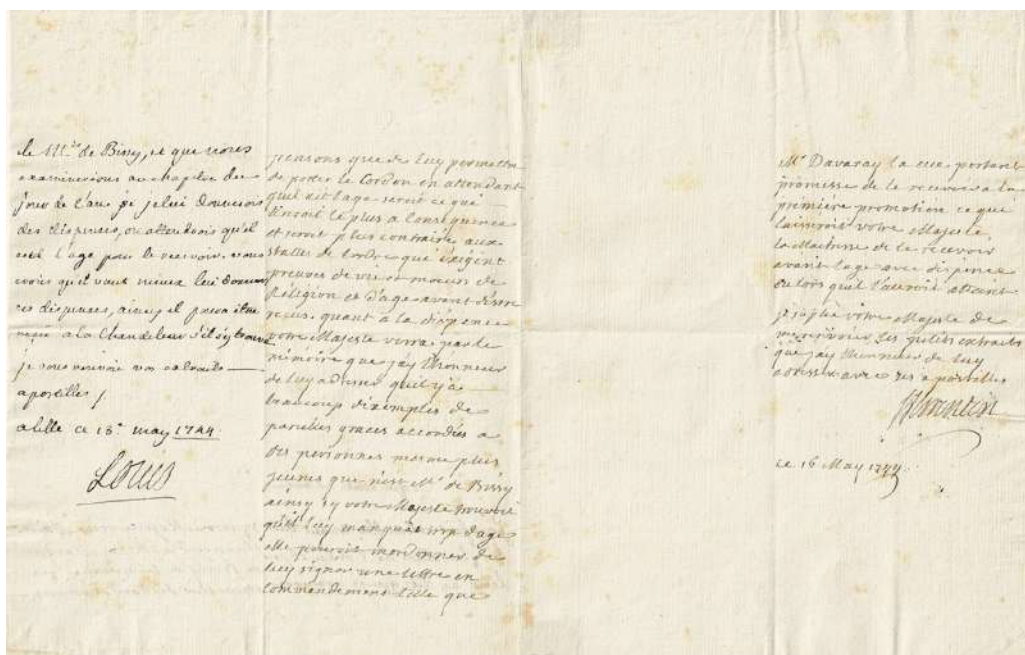 le M.is de Bissy, et que nous
examinerions au chapitre du
jour de l'an si je lui donnerois
des dispenses, ou attendrois qu'il
eust l'age pour le recevoir. vous
qu'il vaut mieux lui donner
ces dispenses, ainsy il poura etre
a la Chandeleur s'il s'y trouve
je vous renvoie vos extraits
apostillés /
a lille ce 18e may 1744
Louis
pensons que de luy permettre
de porter le Cordon en attendant
quil ait l'age seroit ce que
tireroit le plus a Consequence
et seroit plus contraire aux
de lordre que exigent
preuves de vie et moeurs de
Religion et d'age avant destre
receus. quant a la dispence
votre Majeste verra par le
mémoire que jay l'honneur
de luy adresser quil y a
beaucoup d'exemples de
pareilles graces accordées a
des personnes mesme plus
jeunes que n'est Mr de Bissy
ainsy sy votre Majeste trouvoit
qu'il luy manquàt trop d'age
elle pouroit m'ordonner de
luy signer une lettre en
Commandement telle que
Mr Davaray la eue portant
promesse de le recevoir a la
première promotion ce que
laisseroit votre Majesté
la Maitresse de le recevoir
avant l'age avec dispence
ou lors quil l'auroit atteint
je suplie votre Majeste de
me renvoier les petits extraits
que jay l'honneur de luy
adresser avec ses apostilles
ce 16 May 1744